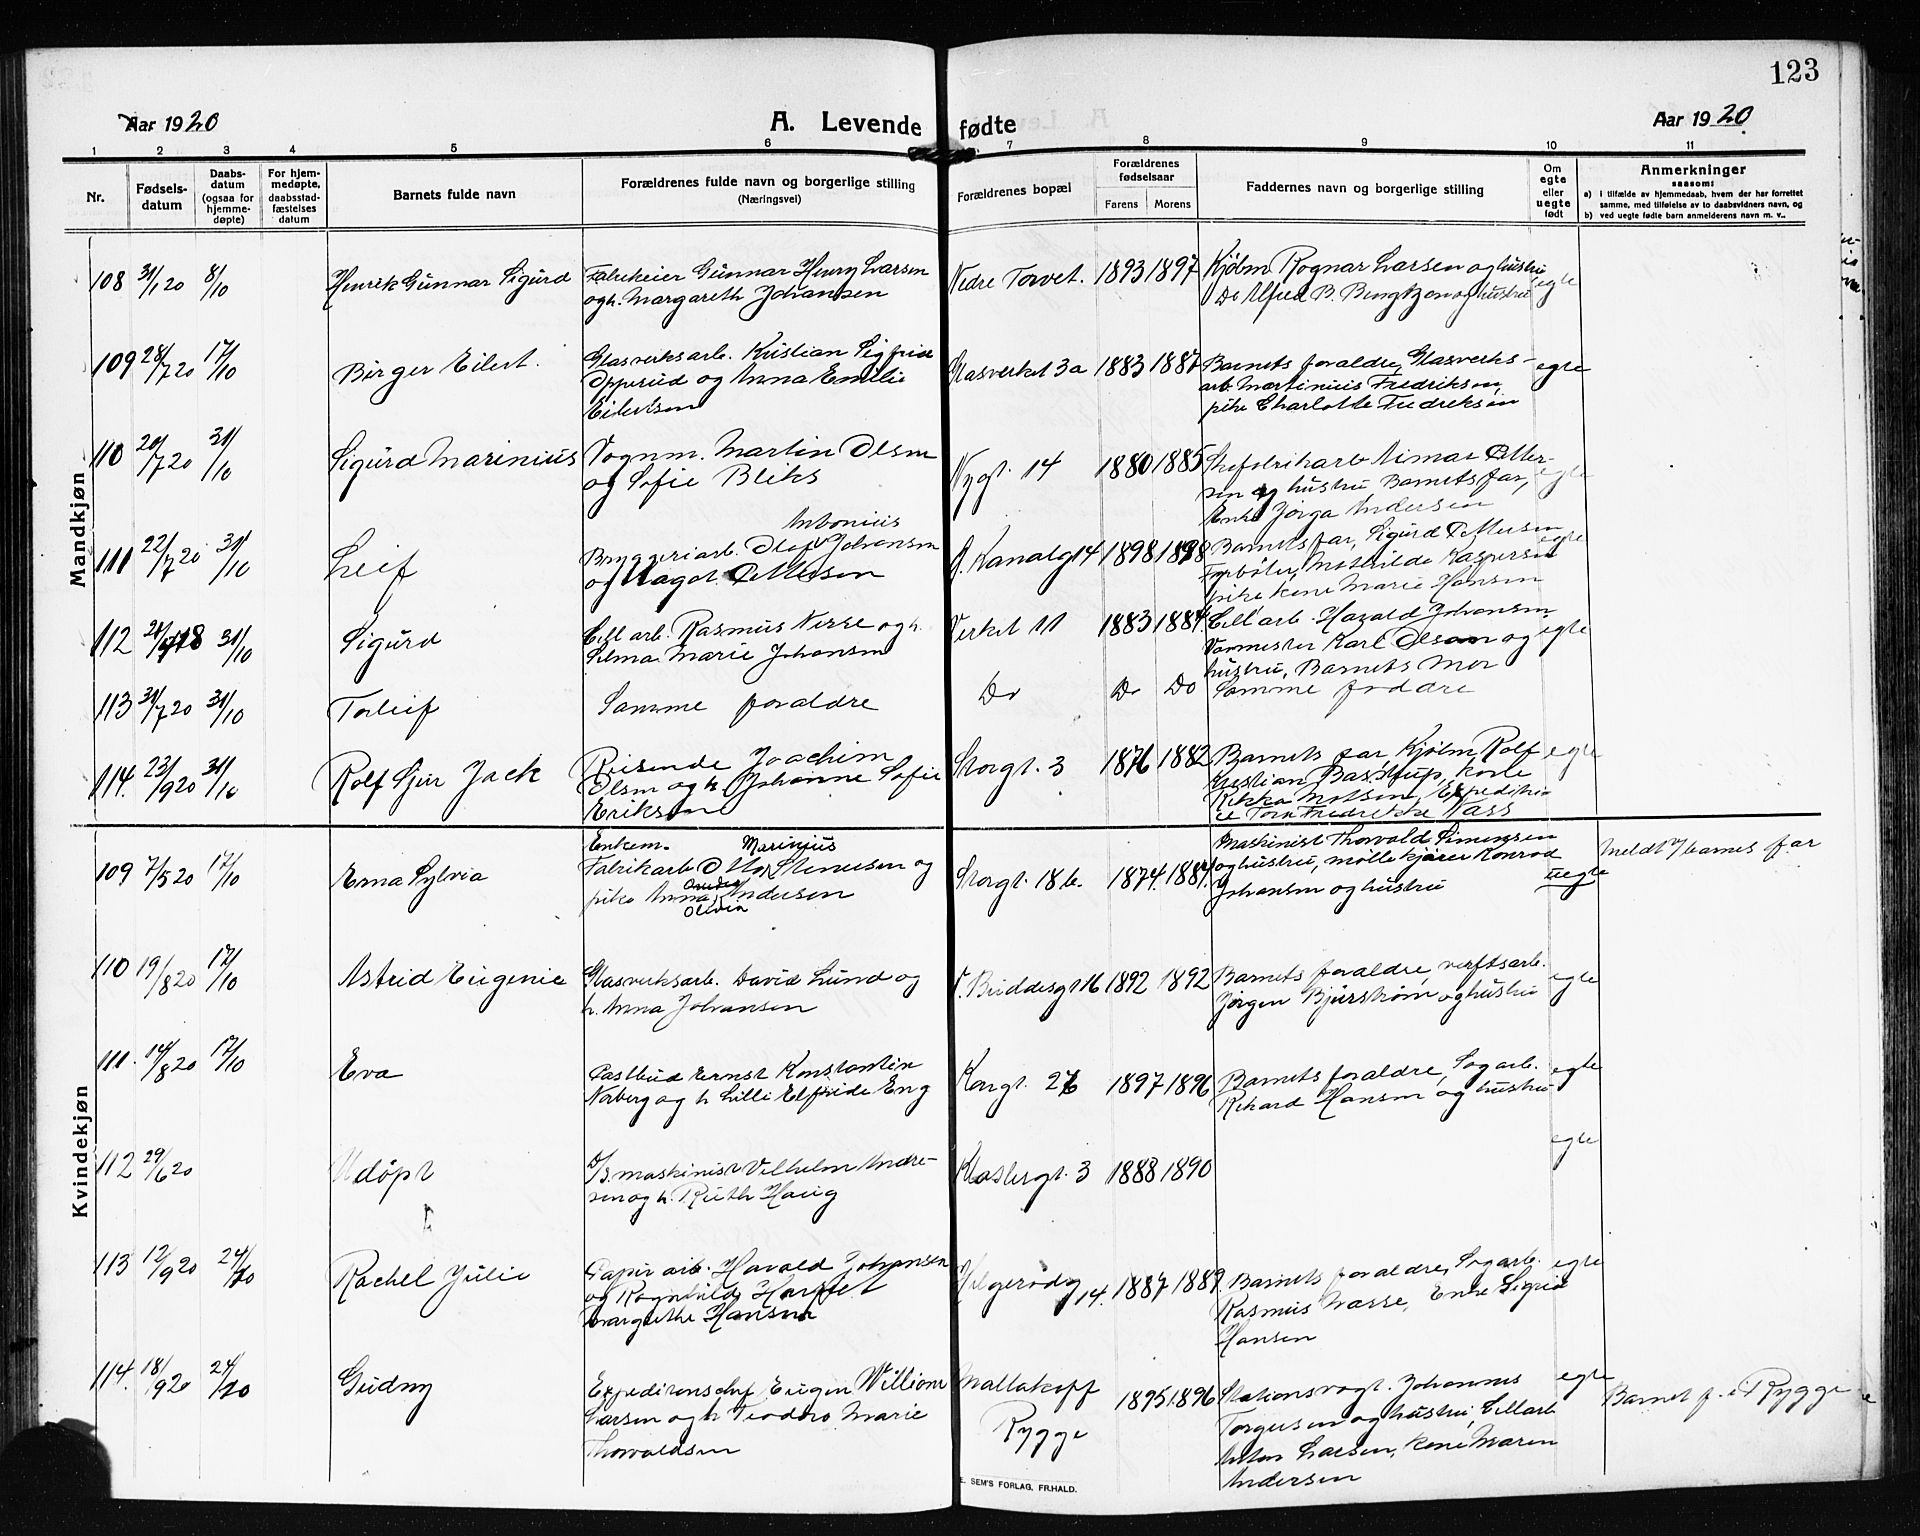 123
Aar 1920
A. Levende fødte
Aar 1920
1 2 3 4 5 6 7 8 9 10 11
Nr.
Fødsels-
datum
Daabs-
datum
(ogsaa for
hjemme-
døpte)
For hjem-
medøpte,
daabsstad-
fæstelses
datum
Barnets fulde navn
Forældrenes fulde navn og borgerlige stilling
(Næringsvei)
Forældrenes bopæl
Forældrenes
fødselsaar
Farens Morens
Faddernes navn og borgerlige stilling
Om
egte
eller
uegte
født
Anmerkninger
saasom:
a) i tilfælde av hjemmedaab, hvem der har forrettet
samme, med tilføielse av to daabsvidners navn, og
b) ved uegte fødte barn anmelderens navn m. v..
Mandkjøn
108 31/1 20 8/10 Henrik Gunnar Sigurd
Fabrikeier Gunnar Henry Larsen
og h. Margareth Johansen
Nedre Torvet. 1893 1897
Kjøbm. Ragnar Larsen og hustru
Do Alfred B. Bengtzen og hustru
egte
109 28/7 20 17/10 Birger Eilert.
Glasverksarb. Kristian Sigfrid
Opperud og Anna Emilie
Eilertsen
Glasverket 3a 1883 1887
Barnets forældre, Glasverks-
arb. Martinius Fredriksen,
pike Charlotte Fredriksen
egte
110 20/7 20 31/10 Sigurd Marinius
Vognm. Martin Olsen
og Sofie Bliks
Nygt. 14 1880 1885
Skofabrikarb. Petter-
sen og hustru Barnets far,
Enke Jørga Andersen
egte
111 22/7 20 31/10 Leif
Antonius
Bryggeriarb. Olaf Johansen
og Magot Pettersen
Kanalg 14 1898 1898
Barnets far, Sigurd Pettersen
Fyrbøter, Mathilde Kaspersen
pike kone Marie Hansen
egte
112 18 31/10 Sigurd
Cell arb. Rasmus Nesse og h.
Selma Marie Johansen
Verket 11 1883 1884
Cell arb. Harald Johansen
Vormester Karl Olsen og
hustru, Barnets Mor
egte
113 31/7 20 31/10 Torleif
Samme forældre
Do Do Do
Samme faddre
114. 23/9 20 31/10 Rolf Sjur Jack
Reisende Joachim
Olsen og h. Johanne Sofie
Eriksen
Storgt. 3 1876 1882
Barnets far Kjøbm. Rolf
Kristian Bastrup, kone
Rikka Madsen, Expeditri-
ce Tora Fredrikke Nass
egte
Kvindekjøn
109 7/5 20 17/10 Erna Sylvia
Enkem. Marinius
Fabrikarb. Otto Stenersen og
pike Anna Andersen
Olivia
Storgt. 18 b. 1874. 1884.
Maskinist Thorvald Simensen
og hustru, møllekjører Konrad
Johansen og hustru
uegte
Meldt v/ barnets far
110 19/8 20 17/10 Astrid Eugenie
Glasverksarb. David Lund og
h. Anna Johansen
V. Buddesgt 16 1892 1892
Barnets forældre, verftsarb.
Jørgen Bjurstrøm og hustru
egte
111. 14/8 20 17/10 Eva
Postbud Ernst Konstantin
Norberg og h. Lilli Elfride Eng
Kongt. 26 1897 1896
Barnets forældre, Sagarb.
Rikard Hansen og hustru
egte
112 29/6 20 Udøpt
D/S maskinist Vilhelm Andre-
sen og h. Ruth Haug
Klostergt. 3 1888 1890
egte
113 12/9 20 24/10 Rachel Julie
Papir arb. Harald Johansen
og Ragnhild
Margrethe Hansen
Helgerødg 14. 1887 1889
Barnets forældre, Sagarb.
Rasmus Nesse, Enke Sigrid
Hansen
egte
114. 18/9 20 24/10 Gudny
Expeditionschef Eugen William
Larsen og h. Teodora Marie
Thorvaldsen
Mallakoff
Rygge
1895 1896
Stationsvogt. Johannes
Torgersen og hustru, Cellarb.
Anton Larsen, kone Maren
Andersen
egte
Barnet f. i Rygge
E. SEM'S FORLAG, FR.HALD.